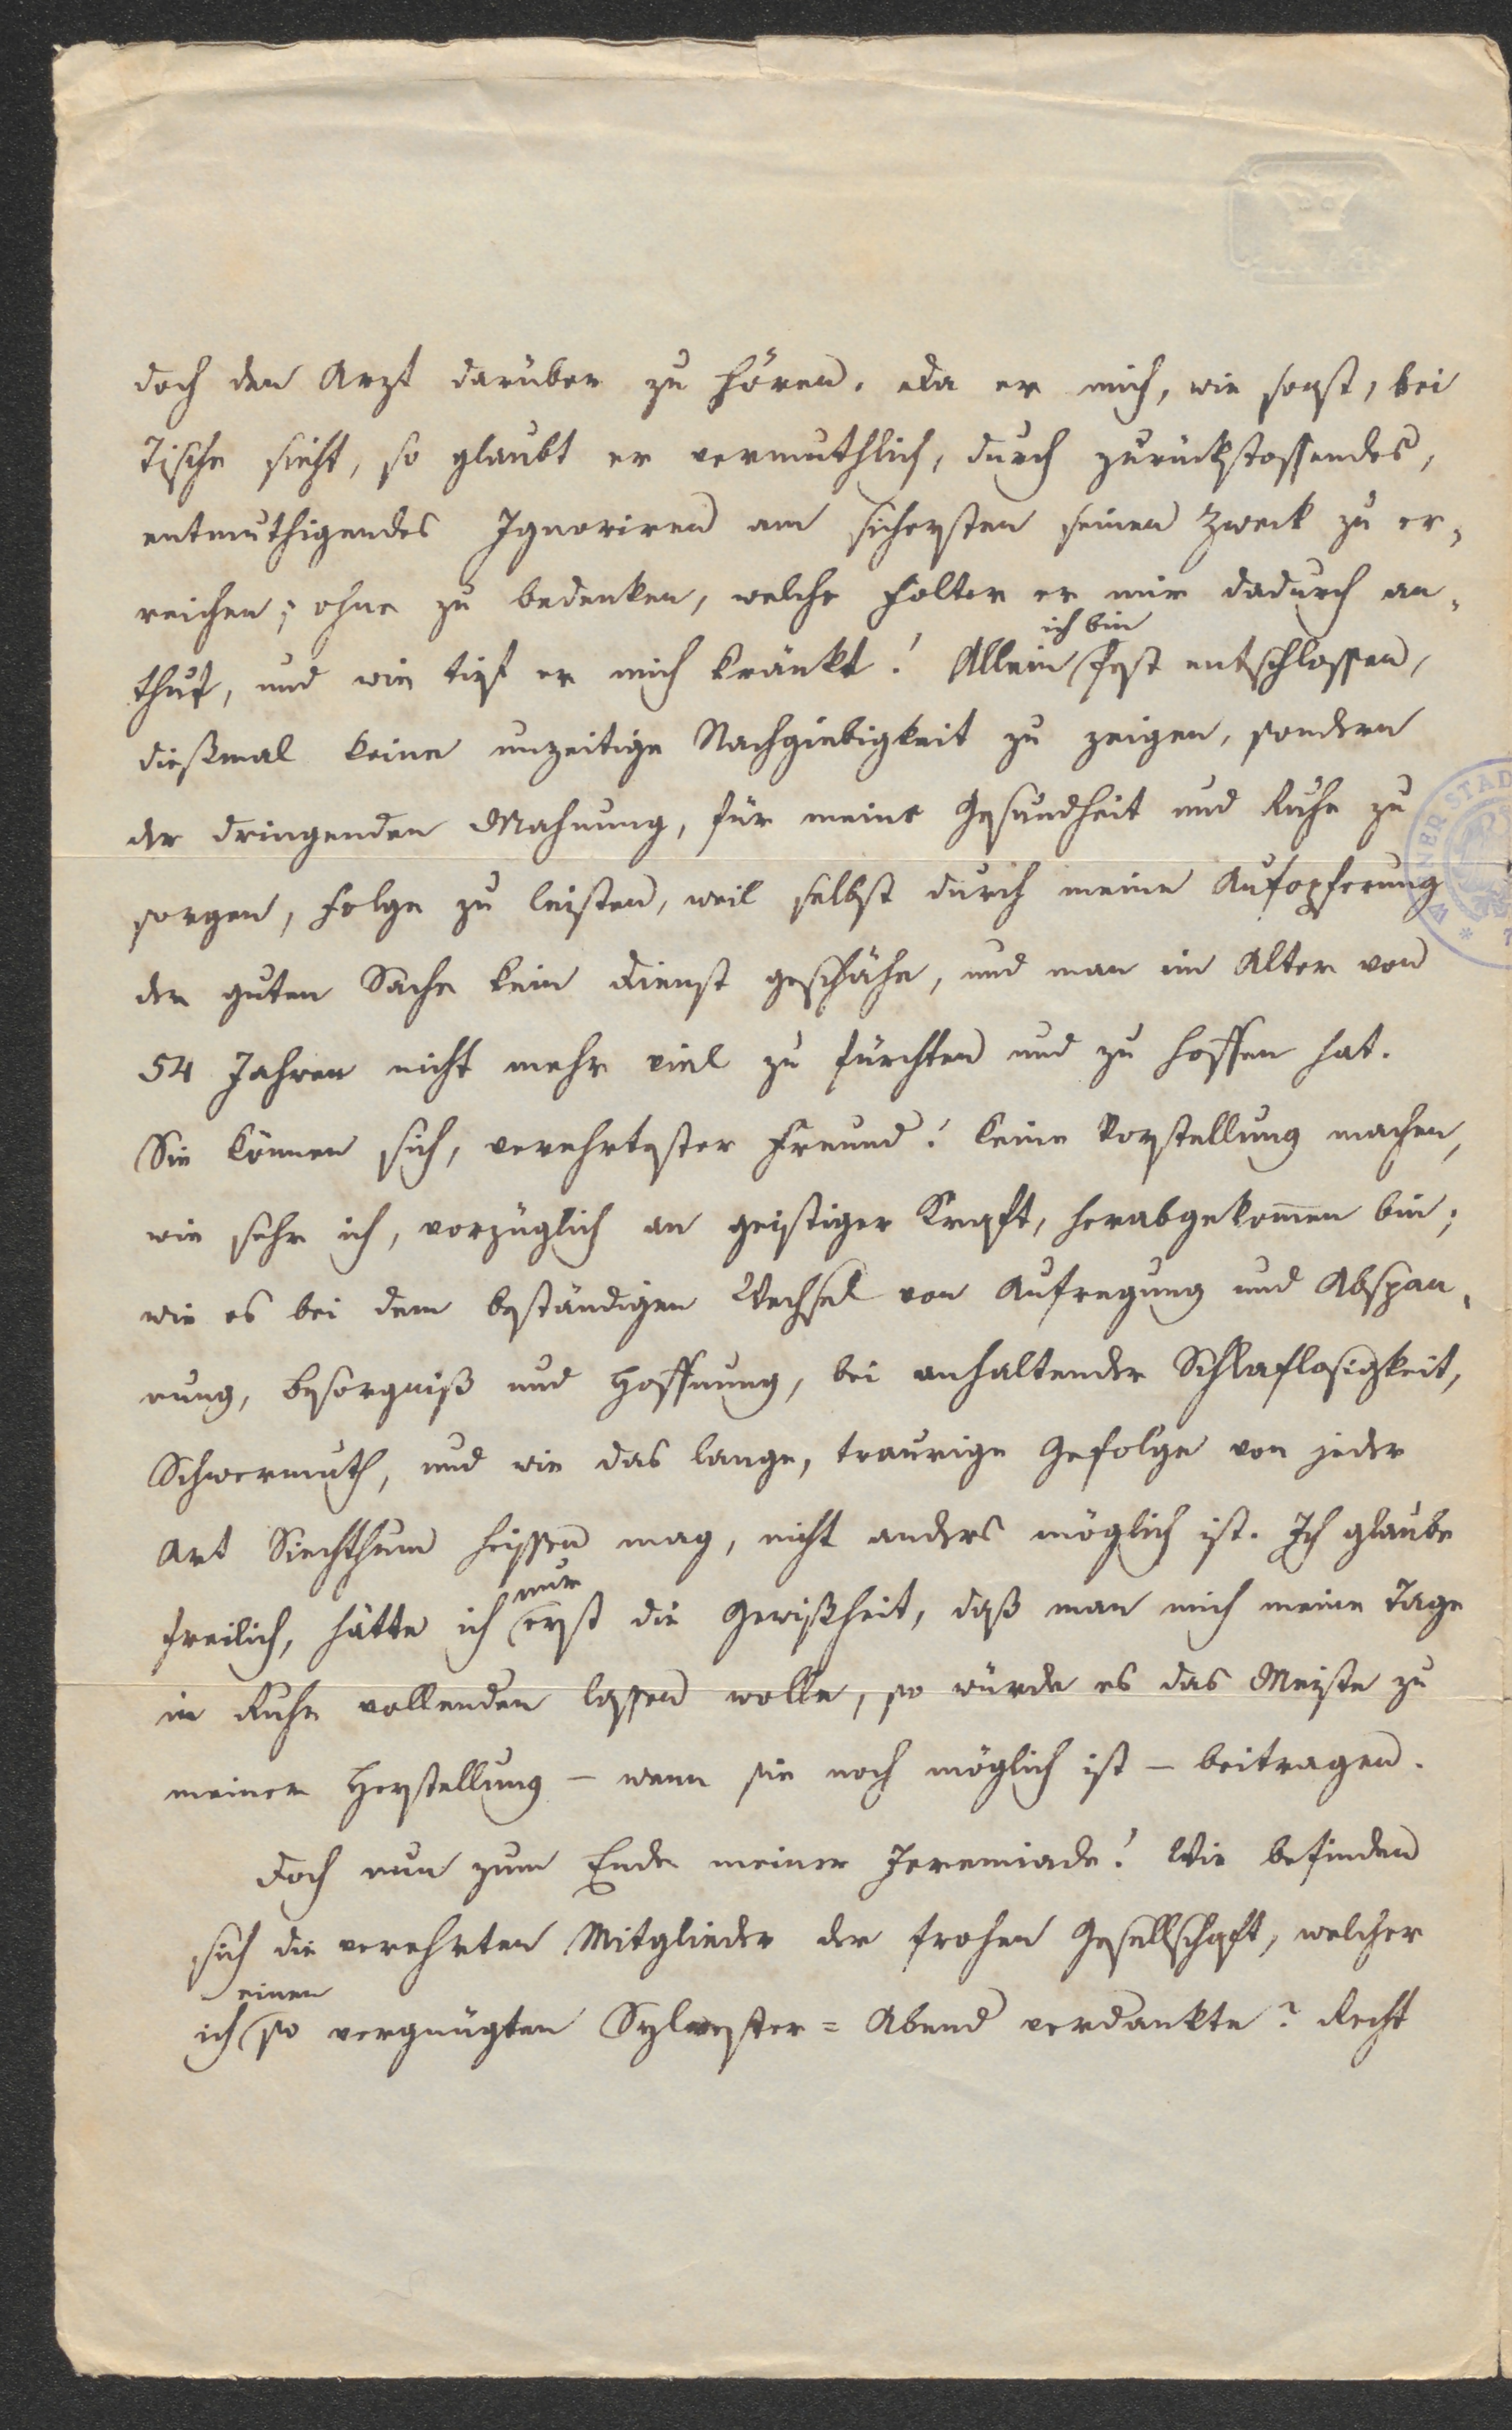 doch den Arzt darüber zu hören. Da er mich, wie sonst, bei
Tische sieht, so glaubt er vermuthlich, durch zurückstossendes,
entmuthigendes Ignoriren am sichersten seinen Zweck zu er-
reichen; ohne zu bedenken, welche Folter er mir dadurch an-
thut, und wie tief er mich kränkt! Allein ich bin fest entschlossen,
dießmal keine unzeitige Nachgiebigkeit zu zeigen, sondern
der dringenden Mahnung, für meine Gesundheit und Ruhe zu
sorgen, Folge zu leisten, weil selbst durch meine Aufopferung
der guten Sache kein Dienst geschähe, und man im Alter von
54 Jahren nicht mehr viel zu fürchten und zu hoffen hat.
Sie können sich, verehrtester Freund! keine Vorstellung machen,
wie sehr ich, vorzüglich an geistiger Kraft, herabgekom̅en bin;
wie es bei dem beständigen Wechsel von Aufregung und Abspan-
nung, Besorgniß und Hoffnung, bei anhaltender Schlaflosigkeit,
Schwermuth, und wie das lange, traurige Gefolge von jeder
Art Siechthum heissen mag, nicht anders möglich ist. Ich glaube
freilich, hätte ich nur erst die Gewißheit, daß man mich meine Tage
in Ruhe vollenden lassen wolle, so würde es das Meiste zu
meiner Herstellung – wenn sie noch möglich ist – beitragen.
Doch nun zum Ende meiner Jeremiade! Wie befinden
sich die verehrten Mitglieder der frohen Gesellschaft, welcher
ich einen so vergnügten Sylvester=Abend verdankte? Recht